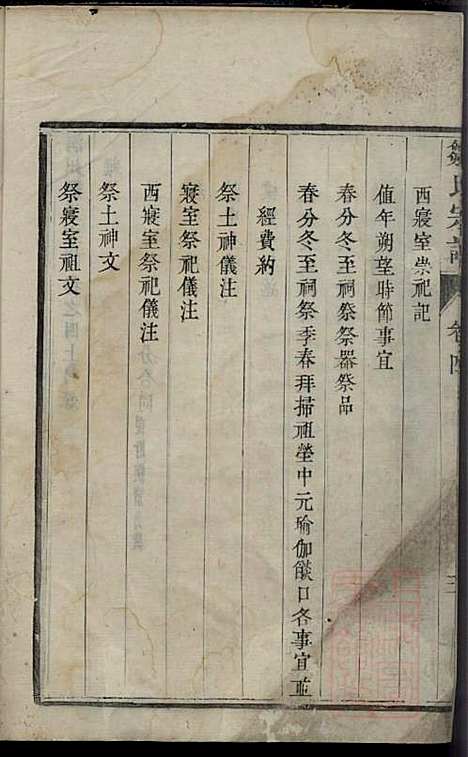 鄒氏宗譜 卷四 三
西寢室崇祀記
值年朔望時節事宜
春分冬至祠祭祭器祭品
春分冬至祠祭季春拜掃祖塋中元瑜伽燄口各事宜並
經費納
祭土神儀注
寢室祭祀儀注
西寢室祭祀儀注
祭土神文
祭寢室祖文